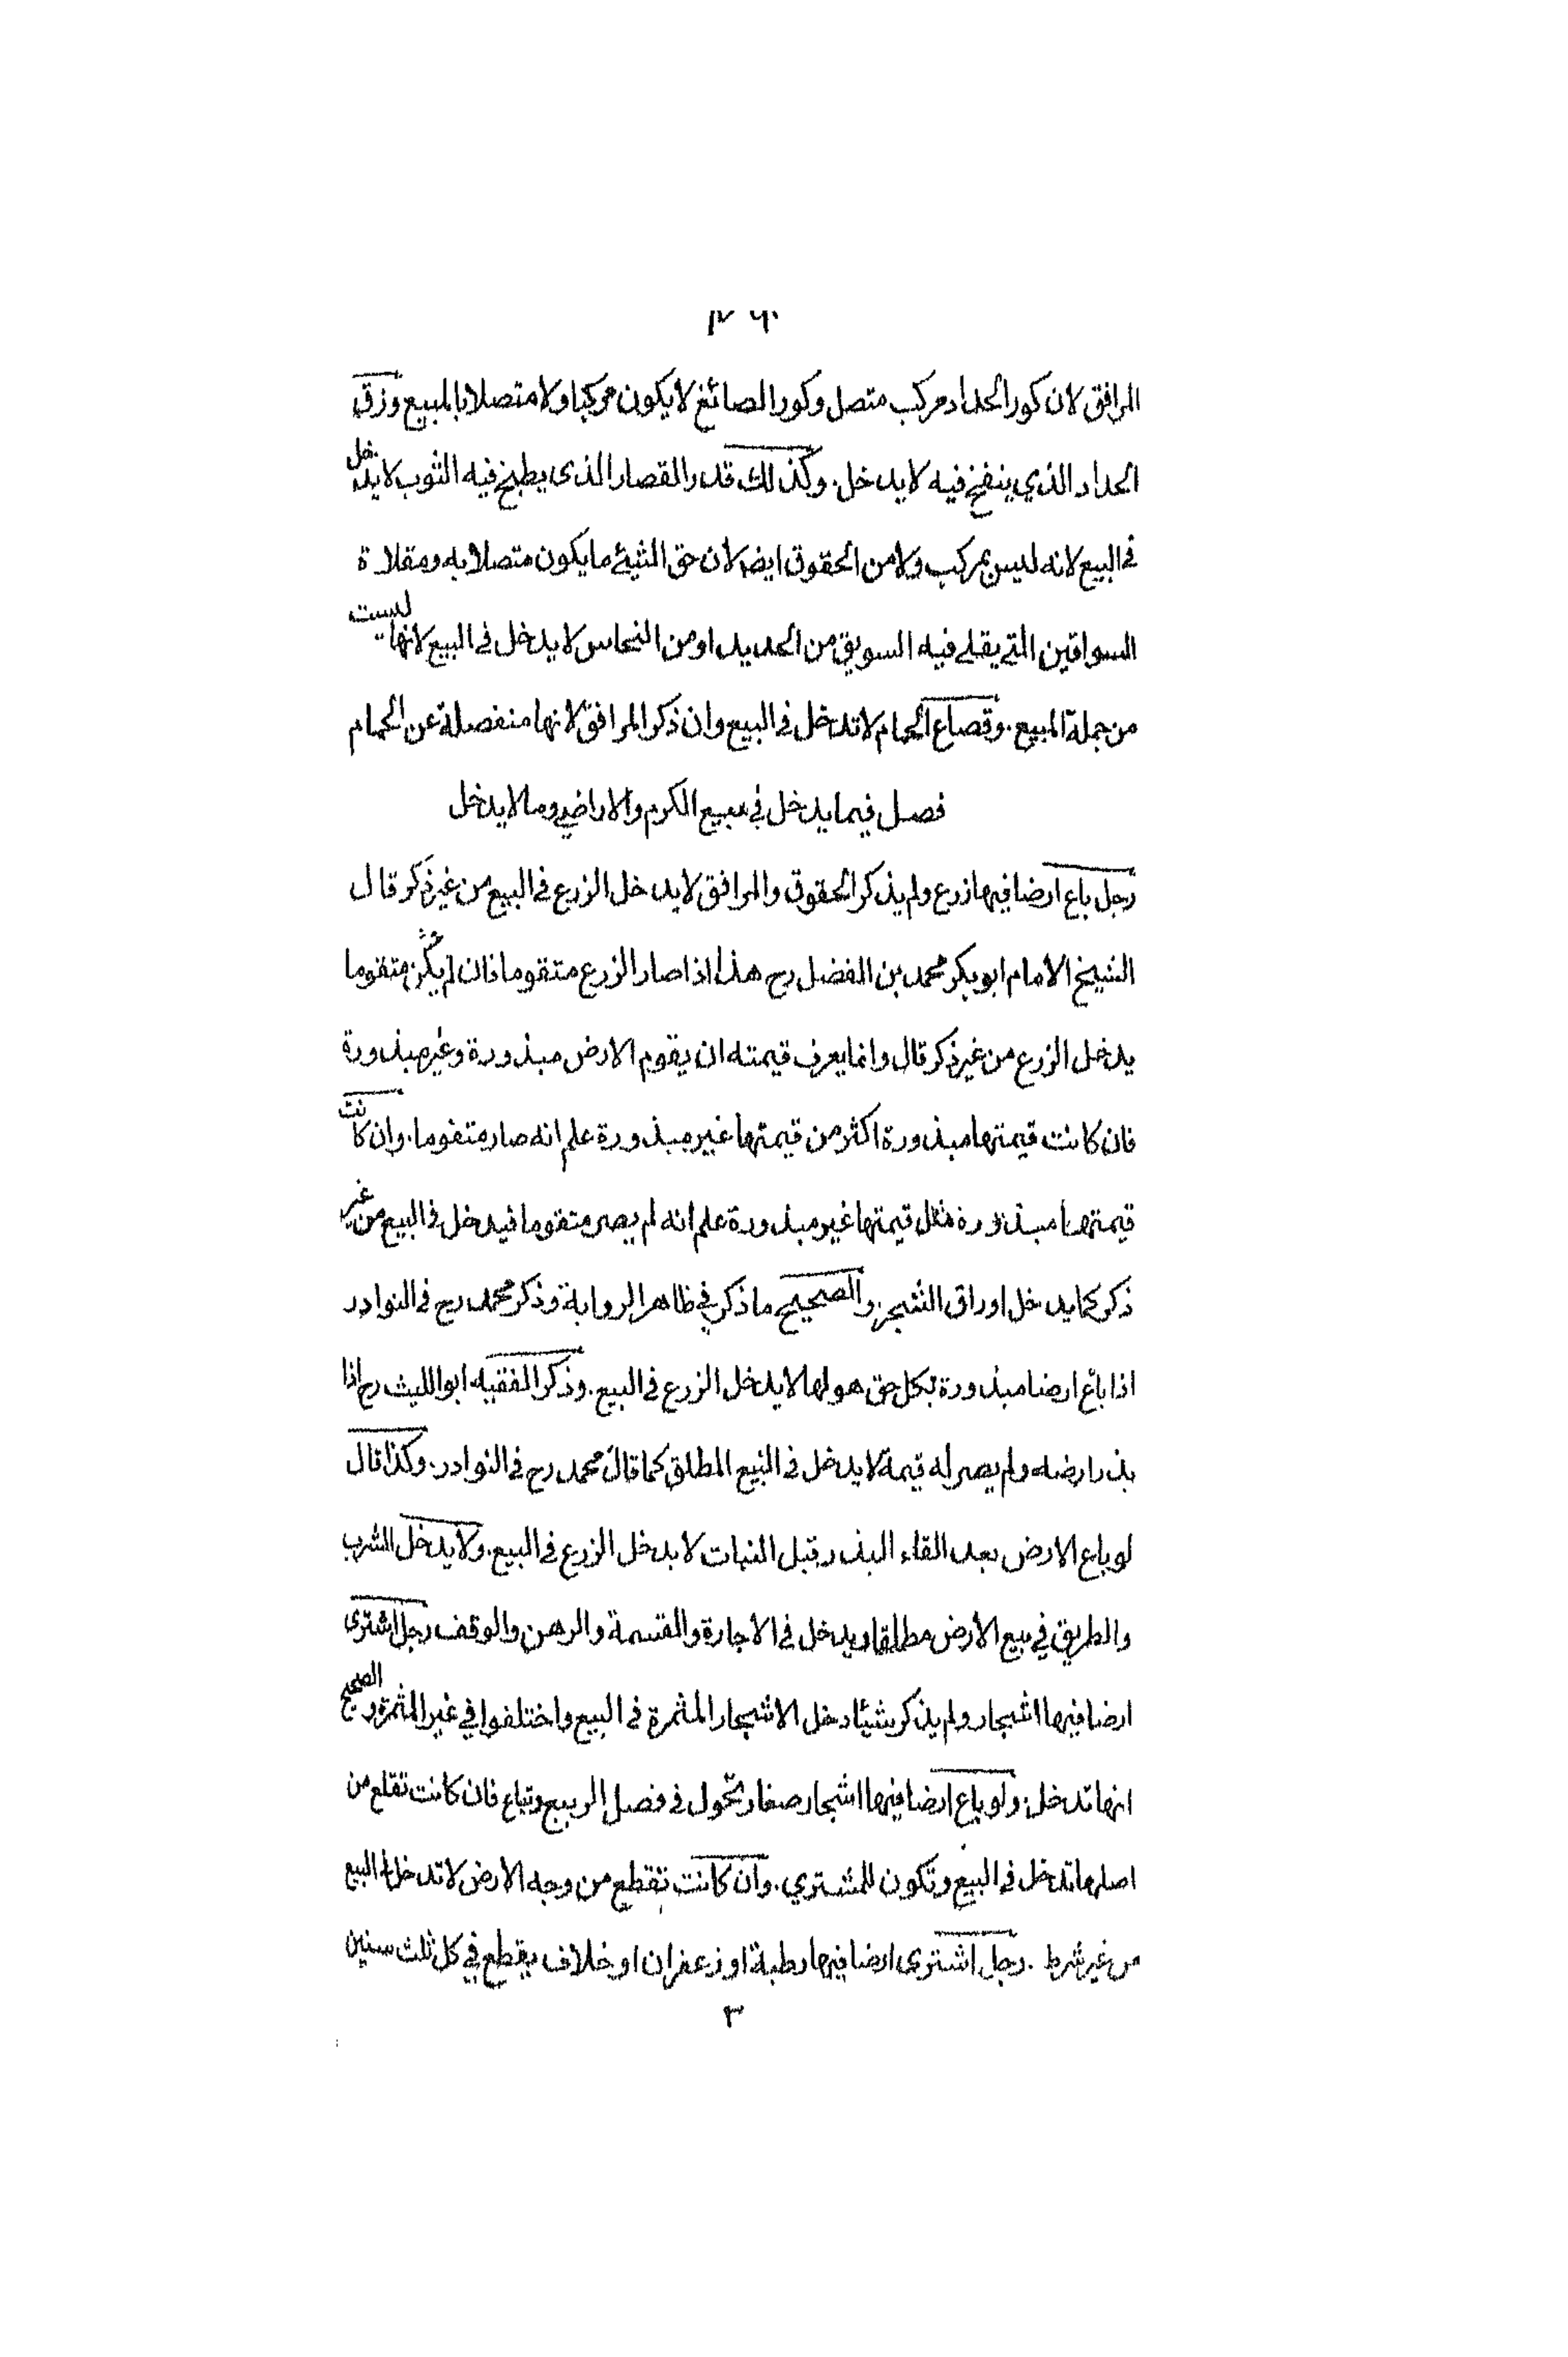 المرافق لان كور الحداد مركب متصل وكور الصائغ لا يكون مركبا ولا متصلا بالمبيع وزق
الحداد الذي ينفخ فيه لا يدخل. وكذلك قدر القصار الذى يطبخ فيه الثوب لا يدخل
فى البيع لانه ليس بمركب ولا من الحقوق ايضا لان حق الشيئ ما يكون متصلا به ومقلاة
السواقين التي يقلى فيه السويق من الحديد او من النحاس لا يدخل فى البيع لانها ليست
من جملة المبيع. وقصاع الحمام لا تدخل فى البيع وان ذكر المرافق لانها منفصلة عن الحمام
فصل فيما يدخل في بيع الكرم والاراضي وما لا يدخل
رجل باع ارضا فيها زرع ولم يذكر الحقوق والمرافق لا يدخل الزرع فى البيع من غير ذكر قال
الشيخ الامام ابو بكر محمد بن الفضل رح هذا اذا صار الزرع متقوما فان لم يكن متقوما
يدخل الزرع من غير ذكر قال وانما يعرف قيمته ان يقوم الارض مبذورة وغير مبذورة
فان كانت قيمتها مبذورة اكثر من قيمتها غير مبذورة علم انه صار متقوما. وان كانت
قيمتها مبذورة مثل قيمتها غير مبذورة علم انه لم يصر متقوما فيدخل فى البيع من غير
ذكر كما يدخل اوراق الشجر. والصحيح ما ذكر في ظاهر الرواية وذكر محمد رح فى النوادر
اذا باع ارضا مبذورة بكل حق هو لها لا يدخل الزرع فى البيع. وذكر الفقيه ابو الليث رح اذا
بذر ارضه ولم يصر له قيمة لا يدخل فى البيع المطلق كما قال محمد رح فى النوادر. وكذا قال
لو باع الارض بعد القاء البذر قبل النبات لا يدخل الزرع فى البيع. ولا يدخل الشرب
والطريق في بيع الارض مطلقا ويدخل فى الاجارة والقسمة والرهن والوقف رجل اشترى
ارضا فيها اشجار ولم يذكر شيئا دخل الاشجار المثمرة فى البيع واختلفوا في غير المثمرة والصحيح
انها تدخل. ولو باع ارضا فيها اشجار صغار تحول فى فصل الربيع وتباع فان كانت تقلع من
اصلها تدخل فى البيع وتكون للمشتري. وان كانت تقطع من وجه الارض لا تدخل البيع
من غير شرط. رجل اشترى ارضا فيها رطبة او زعفران او خلاف يقطع في كل ثلث سنين
٣